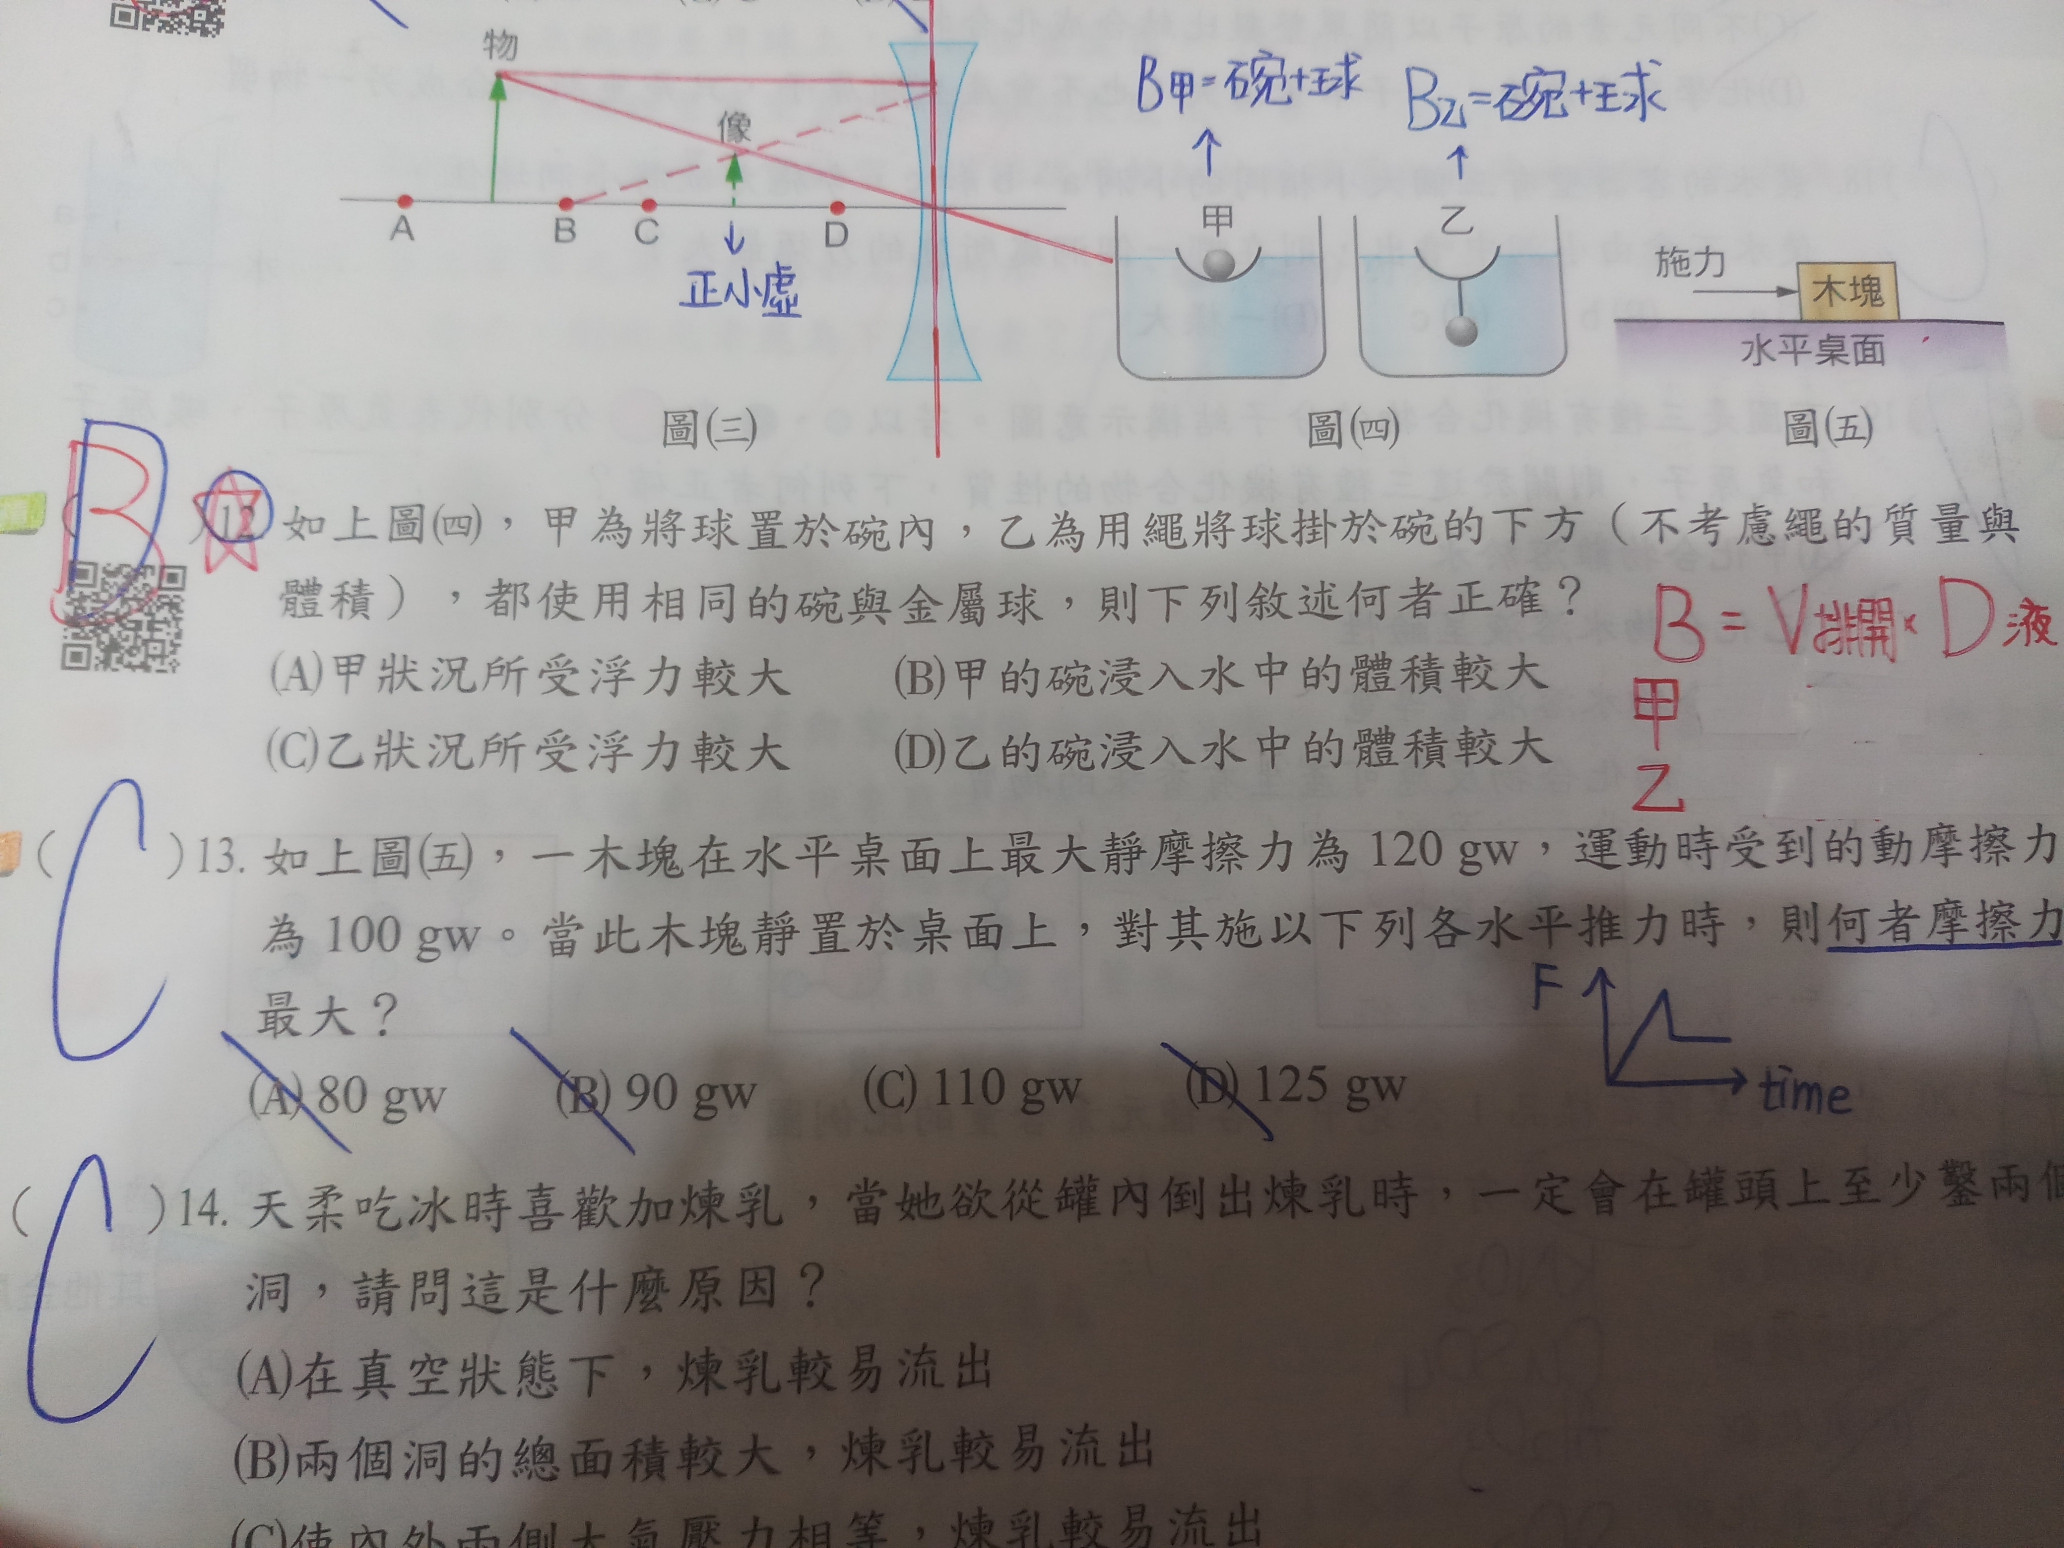 物
像
A B C D
正小虛
圖㈢
B甲=碗+球
B乙=碗+球
甲
乙
圖㈣
施力
木塊
水平桌面
圖㈤
B
12 如上圖㈣，甲為將球置於碗內，乙為用繩將球掛於碗的下方（不考慮繩的質量與
體積），都使用相同的碗與金屬球，則下列敘述何者正確？
(A)甲狀況所受浮力較大 (B)甲的碗浸入水中的體積較大
(C)乙狀況所受浮力較大 (D)乙的碗浸入水中的體積較大
B=V排開×D液
甲
乙
( C )13. 如上圖㈤，一木塊在水平桌面上最大靜摩擦力為 120 gw，運動時受到的動摩擦力
為 100 gw。當此木塊靜置於桌面上，對其施以下列各水平推力時，則何者摩擦力
最大？
(A) 80 gw (B) 90 gw (C) 110 gw (D) 125 gw
F
time
( C )14. 天柔吃冰時喜歡加煉乳，當她欲從罐內倒出煉乳時，一定會在罐頭上至少鑿兩個
洞，請問這是什麼原因？
(A)在真空狀態下，煉乳較易流出
(B)兩個洞的總面積較大，煉乳較易流出
(C)使內外兩側大氣壓力相等，煉乳較易流出